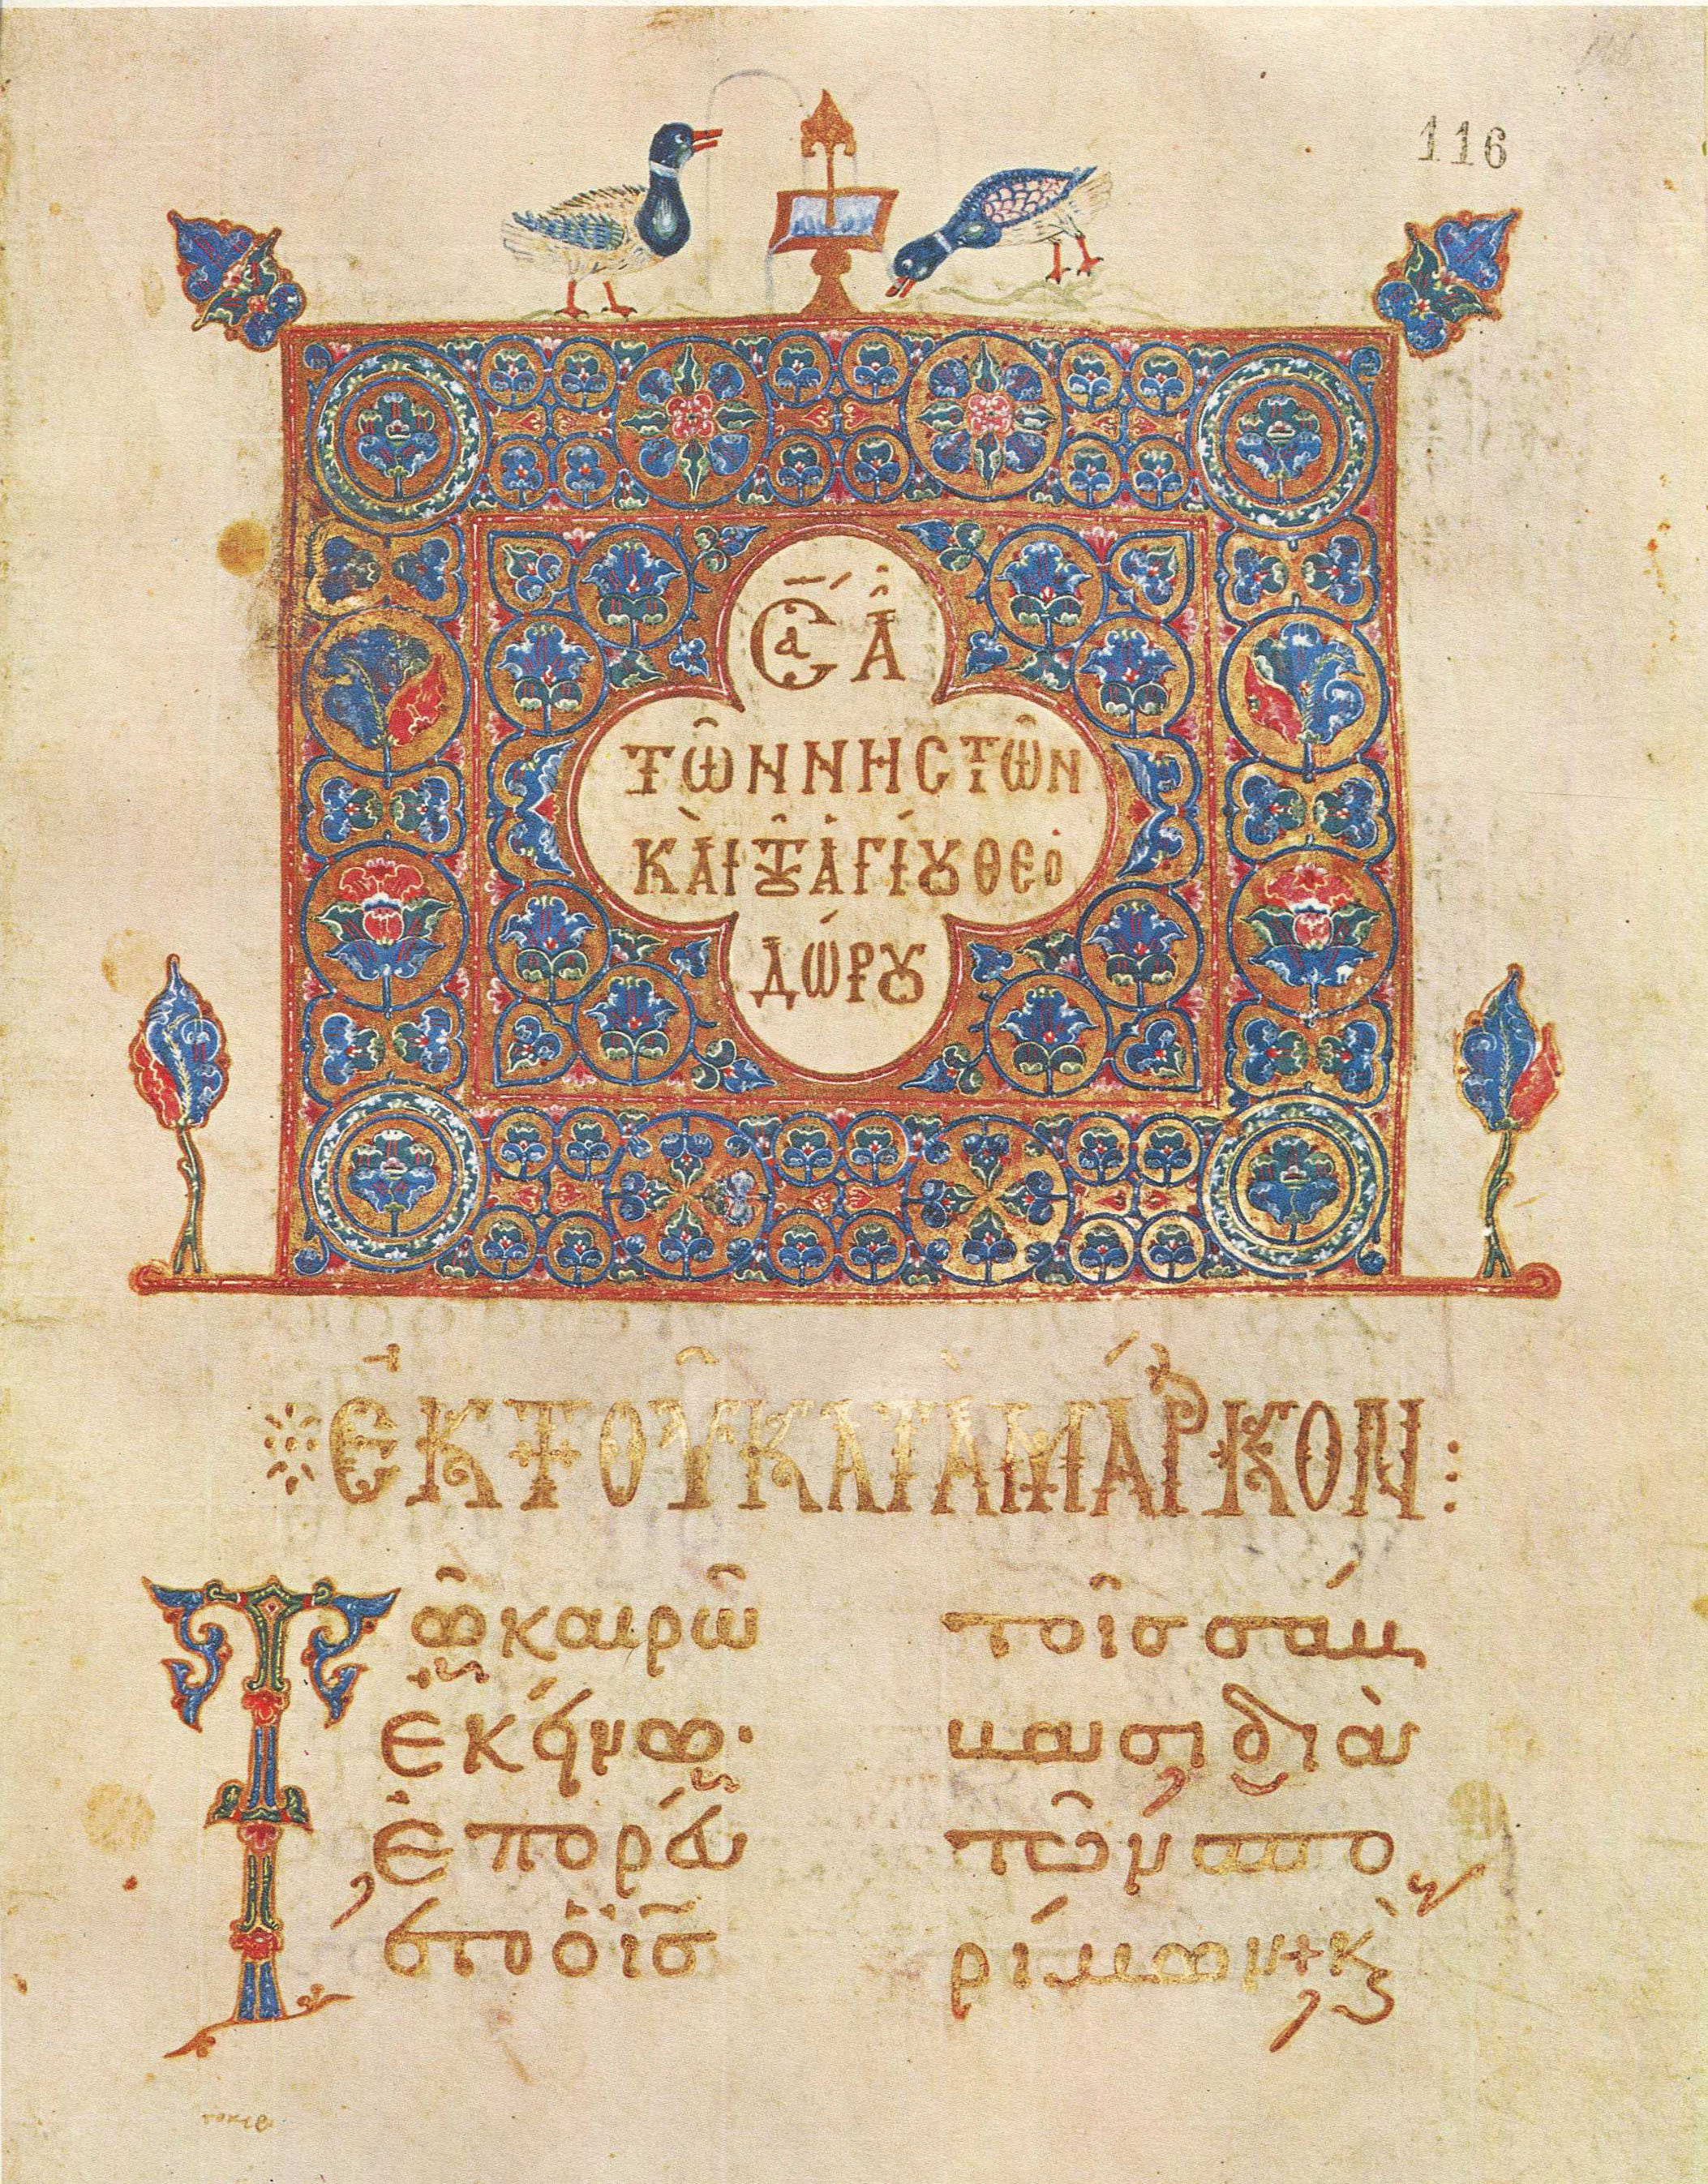 116
Σα Α
ΤΩ͂Ν ΝΗСΤΩ͂Ν
ΚΑῚ ΤȢ͂ ἉΓΊȢ ΘΕΟ
ΔΏΡȢ
ἘΚ ΤΟΥ͂ ΚΑΤᾺ ΜΆΡΚΟΝ:
Τῶ καιρῶ
ἐκείνω·
ἐπορεύ
ετο ὁ ἰ̅σ̅
τοῖς σάμ
μασι διὰ
τῶν σπο
ρίμων + κ(αὶ)